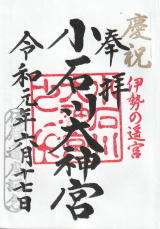 慶祝
奉拝
伊勢の遥宮
小石川大神宮
令和元年六月十七日